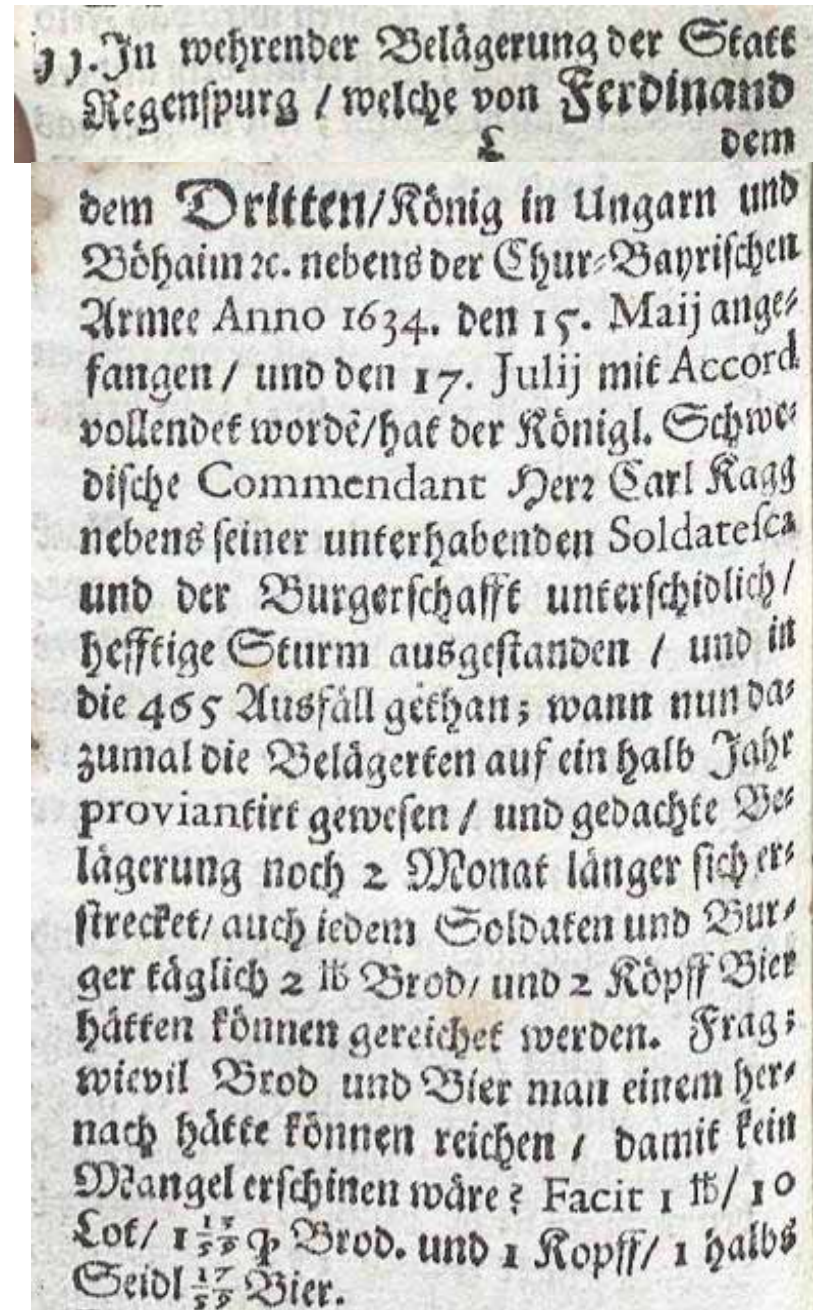 In wehrender Belägerung der Statt
Regenſpurg / welche von Ferdinand
L dem
dem Dritten/König in Ungarn und
Böhaim ꝛc. nebens der Chur⸗Bayriſchen
Armee Anno 1634. den 15. Maij ange⸗
fangen / und den 17. Julij mit Accord
vollendet wordẽ/hat der Königl. Schwe⸗
diſche Commendant Herꝛ Carl Kagg
nebens ſeiner unterhabenden Soldateſca
und der Burgerſchafft unterſchidlich /
hefftige Sturm ausgeſtanden / und in
die 465 Ausfäll gethan; wann nun da⸗
zumal die Belägerten auf ein halb Jahr
proviantirt geweſen / und gedachte Be⸗
lägerung noch 2 Monat länger ſich er⸗
ſtrecket/ auch iedem Soldaten und Bur⸗
ger täglich 2 ℔ Brod/ und 2 Köpff Bier
hätten können gereichet werden. Frag;
wievil Brod und Bier man einem her⸗
nach hätte können reichen / damit kein
Mangel erſchinen wäre? Facit 1 ℔/ 10
Lot/ 1 13/59 q Brod. und 1 Kopff/ 1 halbs
Seidl 17/59 Bier.